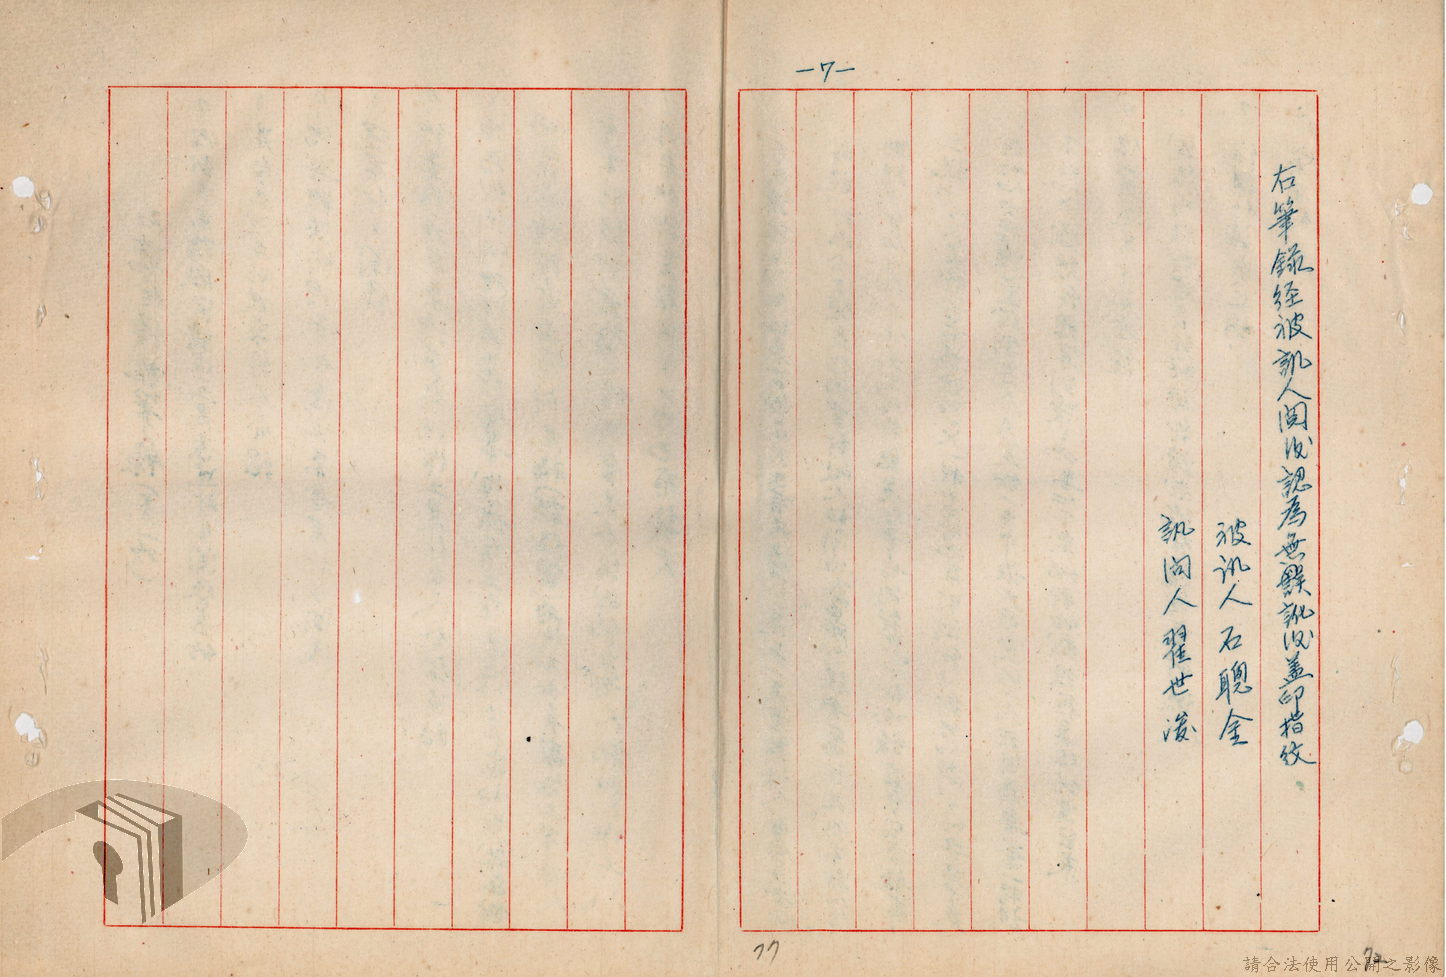 —7—
右筆錄経被訊人閱後認為無異訊後盖印指紋
被訊人石聰金
訊問人翟世浚
77
72
請合法使用公開之影像